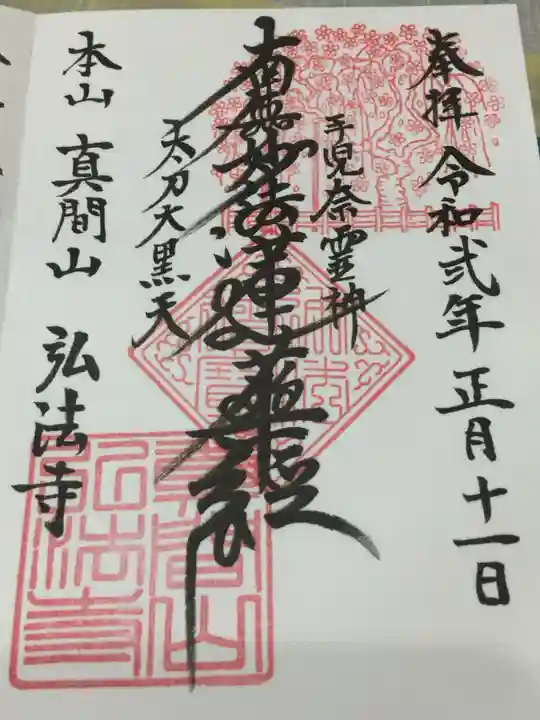 奉拝 令和弐年正月十一日
手児奈霊神
南無妙法蓮華経
太刀大黒天
本山 真間山 弘法寺
真間山弘法寺